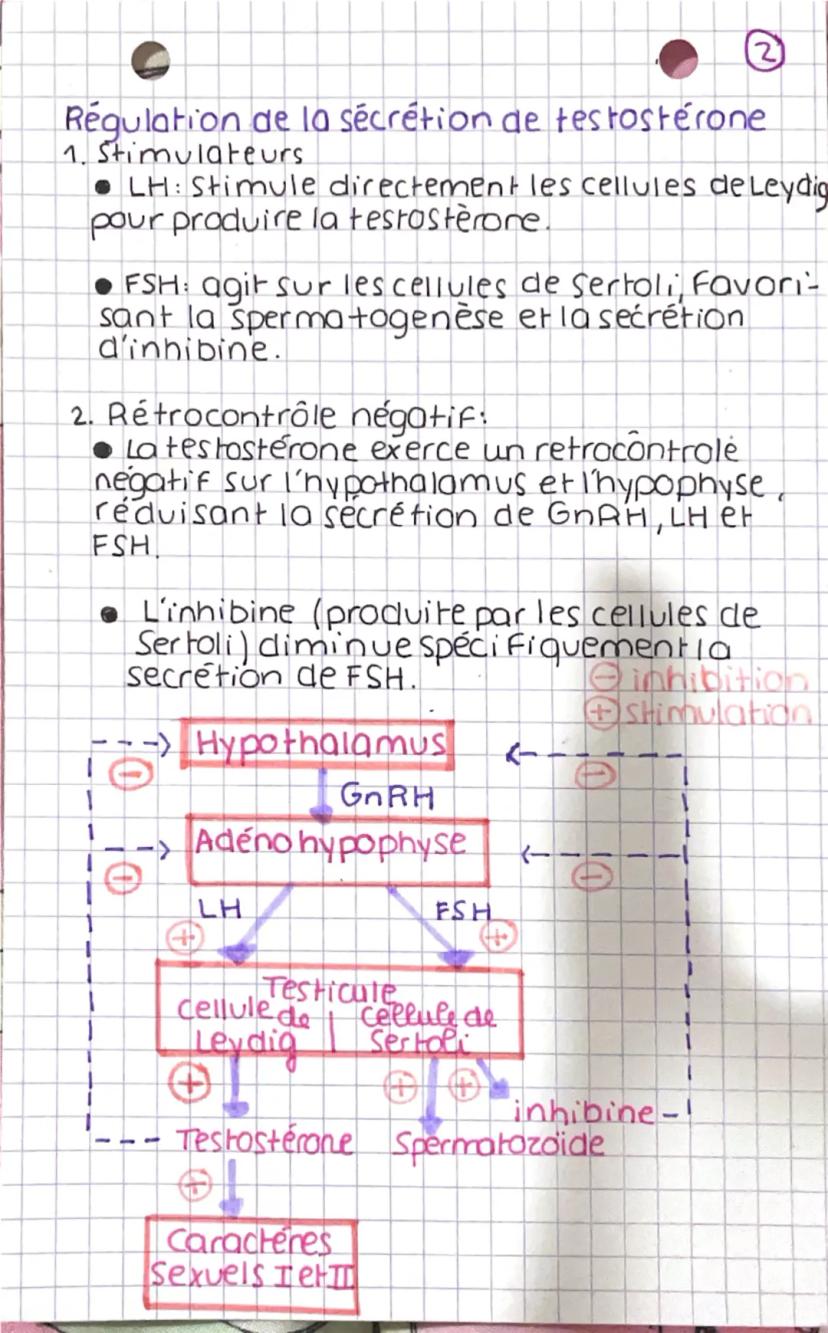 2
Régulation de la sécrétion de testostérone
1. Stimulateurs
• LH: Stimule directement les cellules de Leydig
pour produire la testostèrone.
• FSH: agit sur les cellules de Sertoli, Favori-
sant la spermatogenèse et la secrétion
d'inhibine.
2. Rétrocontrôle négatif:
• La testostérone exerce un retrocôntrolé
négatif sur l'hypothalamus et l'hypophyse,
réduisant la sécrétion de GnRH, LH et
FSH.
• L'inhibine (produite par les cellules de
Sertoli) diminue spécifiquement la
secrétion de FSH.
⊖ inhibition
⊕ stimulation
Hypothalamus
⊖ ⊖
GnRH
Adénohypophyse
⊖ ⊖
LH FSH
⊕ ⊕
Testicule
cellule de | cellule de
Leydig | Sertoli
⊕ ⊕ ⊕
inhibine
Testostérone Spermatozoïde
⊕
Caractéres
Sexuels I et II